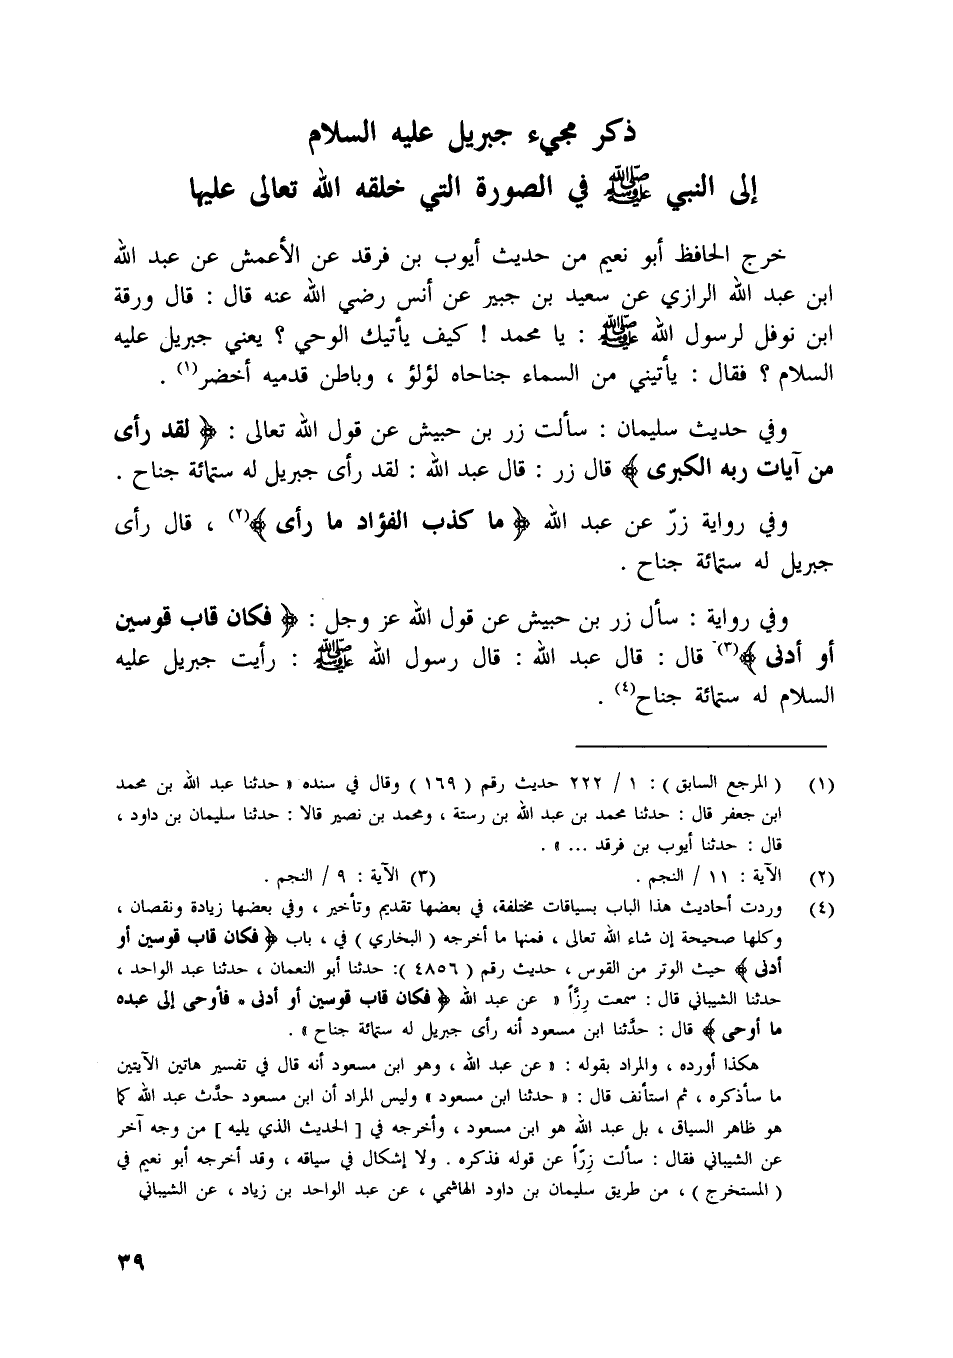 ذكر مجيء جبريل عليه السلام
إلى النبي ﷺ في الصورة التي خلقه الله تعالى عليها
خرج الحافظ أبو نعيم من حديث أيوب بن فرقد عن الأعمش عن عبد الله
ابن عبد الله الرازي عن سعيد بن جبير عن أنس رضي الله عنه قال : قال ورقة
ابن نوفل لرسول الله ﷺ : يا محمد ! كيف يأتيك الوحي ؟ يعني جبريل عليه
السلام ؟ فقال : يأتيني من السماء جناحاه لؤلؤ ، وباطن قدميه أخضر(١) .
وفي حديث سليمان : سألت زر بن حبيش عن قول الله تعالى : ﴿ لقد رأى
من آيات ربه الكبرى ﴾ قال زر : قال عبد الله : لقد رأى جبريل له ستمائة جناح .
وفي رواية زرّ عن عبد الله ﴿ ما كذب الفؤاد ما رأى ﴾(٢) ، قال رأى
جبريل له ستمائة جناح .
وفي رواية : سأل زر بن حبيش عن قول الله عز وجل : ﴿ فكان قاب قوسين
أو أدنى ﴾(٣) قال : قال عبد الله : قال رسول الله ﷺ : رأيت جبريل عليه
السلام له ستمائة جناح(٤) .
(١) ( المرجع السابق ) : ١ / ٢٢٢ حديث رقم ( ١٦٩ ) وقال في سنده « حدثنا عبد الله بن محمد
ابن جعفر قال : حدثنا محمد بن عبد الله بن رستة ، ومحمد بن نصير قالا : حدثنا سليمان بن داود ،
قال : حدثنا أيوب بن فرقد ... » .
(٢) الآية : ١١ / النجم . (٣) الآية : ٩ / النجم .
(٤) وردت أحاديث هذا الباب بسياقات مختلفة، في بعضها تقديم وتأخير ، وفي بعضها زيادة ونقصان ،
وكلها صحيحة إن شاء الله تعالى ، فمنها ما أخرجه ( البخاري ) في ، باب ﴿ فكان قاب قوسين أو
أدنى ﴾ حيث الوتر من القوس ، حديث رقم ( ٤٨٥٦ ): حدثنا أبو النعمان ، حدثنا عبد الواحد ،
حدثنا الشيباني قال : سمعت رِزَّاً « عن عبد الله ﴿ فكان قاب قوسين أو أدنى * فأوحى إلى عبده
ما أوحى ﴾ قال : حدَّثنا ابن مسعود أنه رأى جبريل له ستمائة جناح » .
هكذا أورده ، والمراد بقوله : « عن عبد الله ، وهو ابن مسعود أنه قال في تفسير هاتين الآيتين
ما سأذكره ، ثم استأنف قال : « حدثنا ابن مسعود » وليس المراد أن ابن مسعود حدَّث عبد الله كما
هو ظاهر السياق ، بل عبد الله هو ابن مسعود ، وأخرجه في [ الحديث الذي يليه ] من وجه آخر
عن الشيباني فقال : سألت زِرّاً عن قوله فذكره . ولا إشكال في سياقه ، وقد أخرجه أبو نعيم في
( المستخرج ) ، من طريق سليمان بن داود الهاشمي ، عن عبد الواحد بن زياد ، عن الشيباني
٣٩